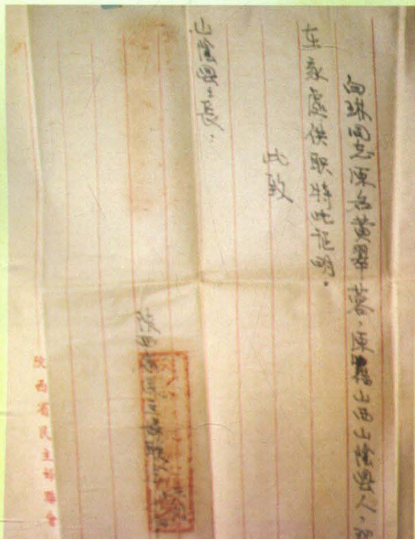 向珠同志原名黄翠蓉，原籍山西山陰縣人，現
在敌處供职特此証明。
此致
山陰縣县長：
陕西省民主妇联
陕西省民主婦聯會